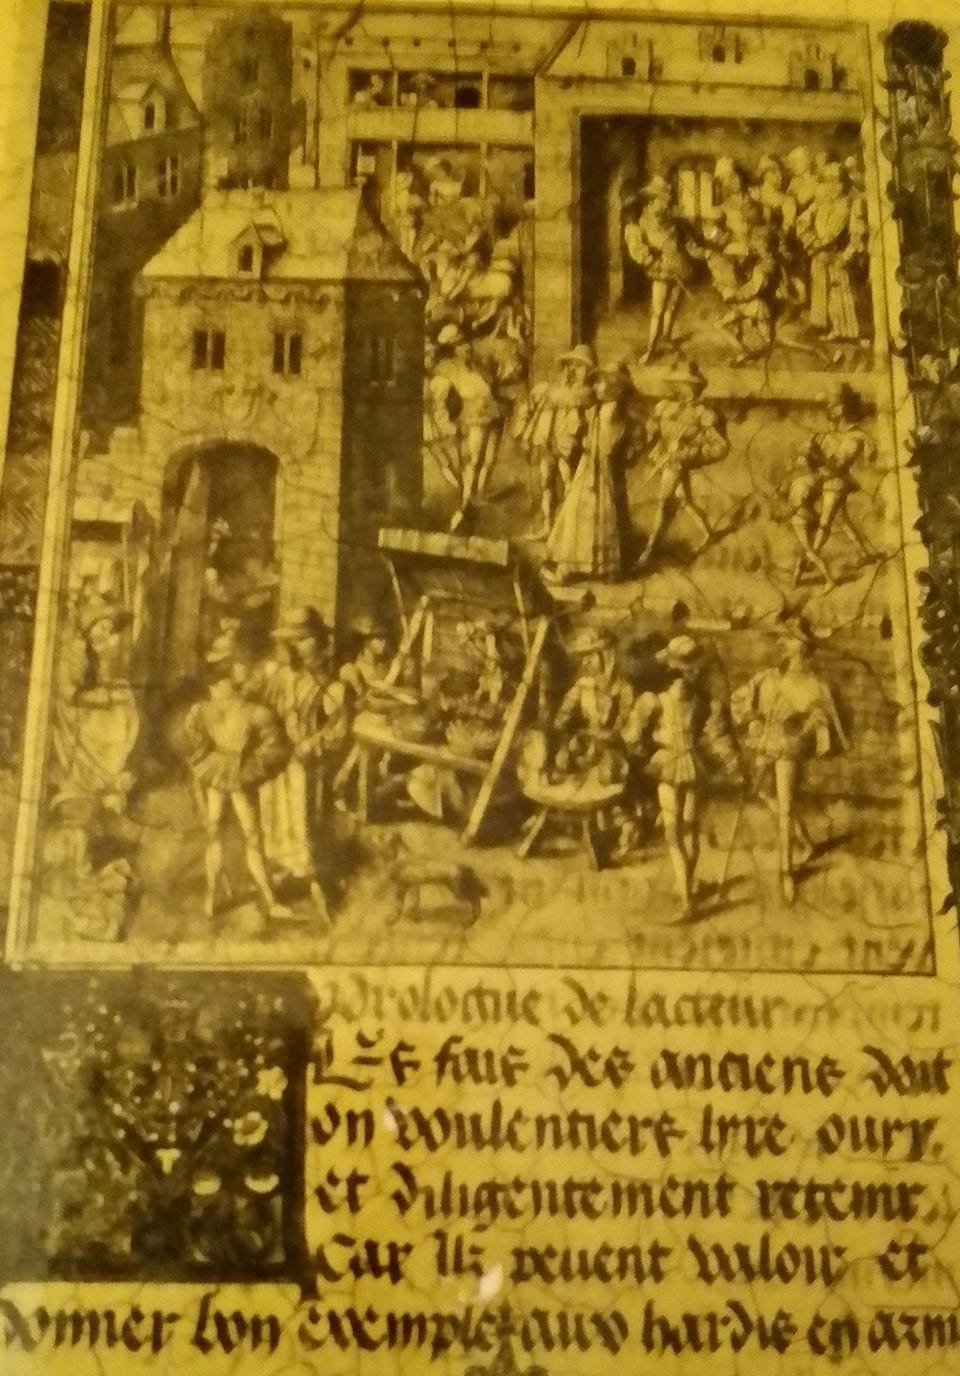 Prologue de lacteur
Les fais des anciens doit
on voulentiers lyre ouyr
et diligentement retenir
Car ilz peuent valoir et
donner bon exemple aux hardis en arm